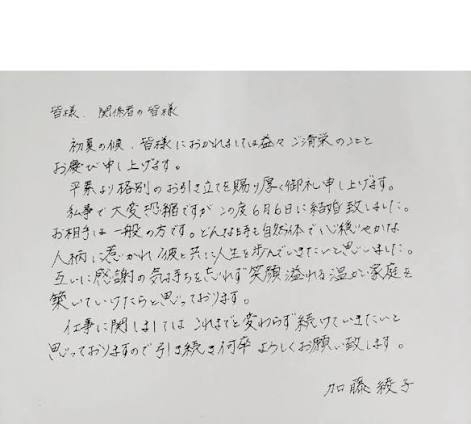 皆様、関係者の皆様
初夏の候、皆様におかれましては益々ご清栄のことと
お慶び申し上げます。
平素より格別のお引き立てを賜り厚く御礼申し上げます。
私事で大変恐縮ですがこの度6月6日に結婚致しました。
お相手は一般の方です。どんな時も自然体で心穏やかな
人柄に惹かれ彼と共に人生を歩んでいきたいと思いました。
互いに感謝の気持ちを忘れず笑顔溢れる温かい家庭を
築いていけたらと思っております。
仕事に関しましてはこれまでと変わらず続けていきたいと
思っておりますので引き続き何卒よろしくお願い致します。
加藤綾子